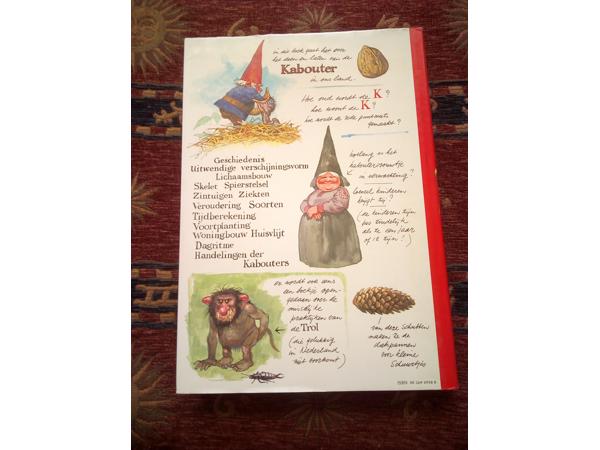 in dit boek gaat het over
het doen en laten van de
Kabouter
in ons land.
Hoe oud wordt de K?
hoe woont de K?
hoe wordt de rode puntmuts
gemaakt?
Geschiedenis
Uitwendige verschijningsvorm
Lichaamsbouw
Skelet Spierstelsel
Zintuigen Ziekten
Veroudering Soorten
Tijdberekening
Voortplanting
Woningbouw Huisvlijt
Dagritme
Handelingen der
Kabouters
hoelang is het
kaboutervrouwtje
in verwachting?
hoeveel kinderen
krijgt zij?
(de kinderen zijn
pas
als ze een jaar
of 12 zijn?)
er wordt ook eens
een boekje open-
gedaan over de
praktijken van
de Trol
(die gelukkig
in Nederland
niet voorkomt)
van deze Schubben
maken ze de
dakpannen
voor kleine
Schuurtjes